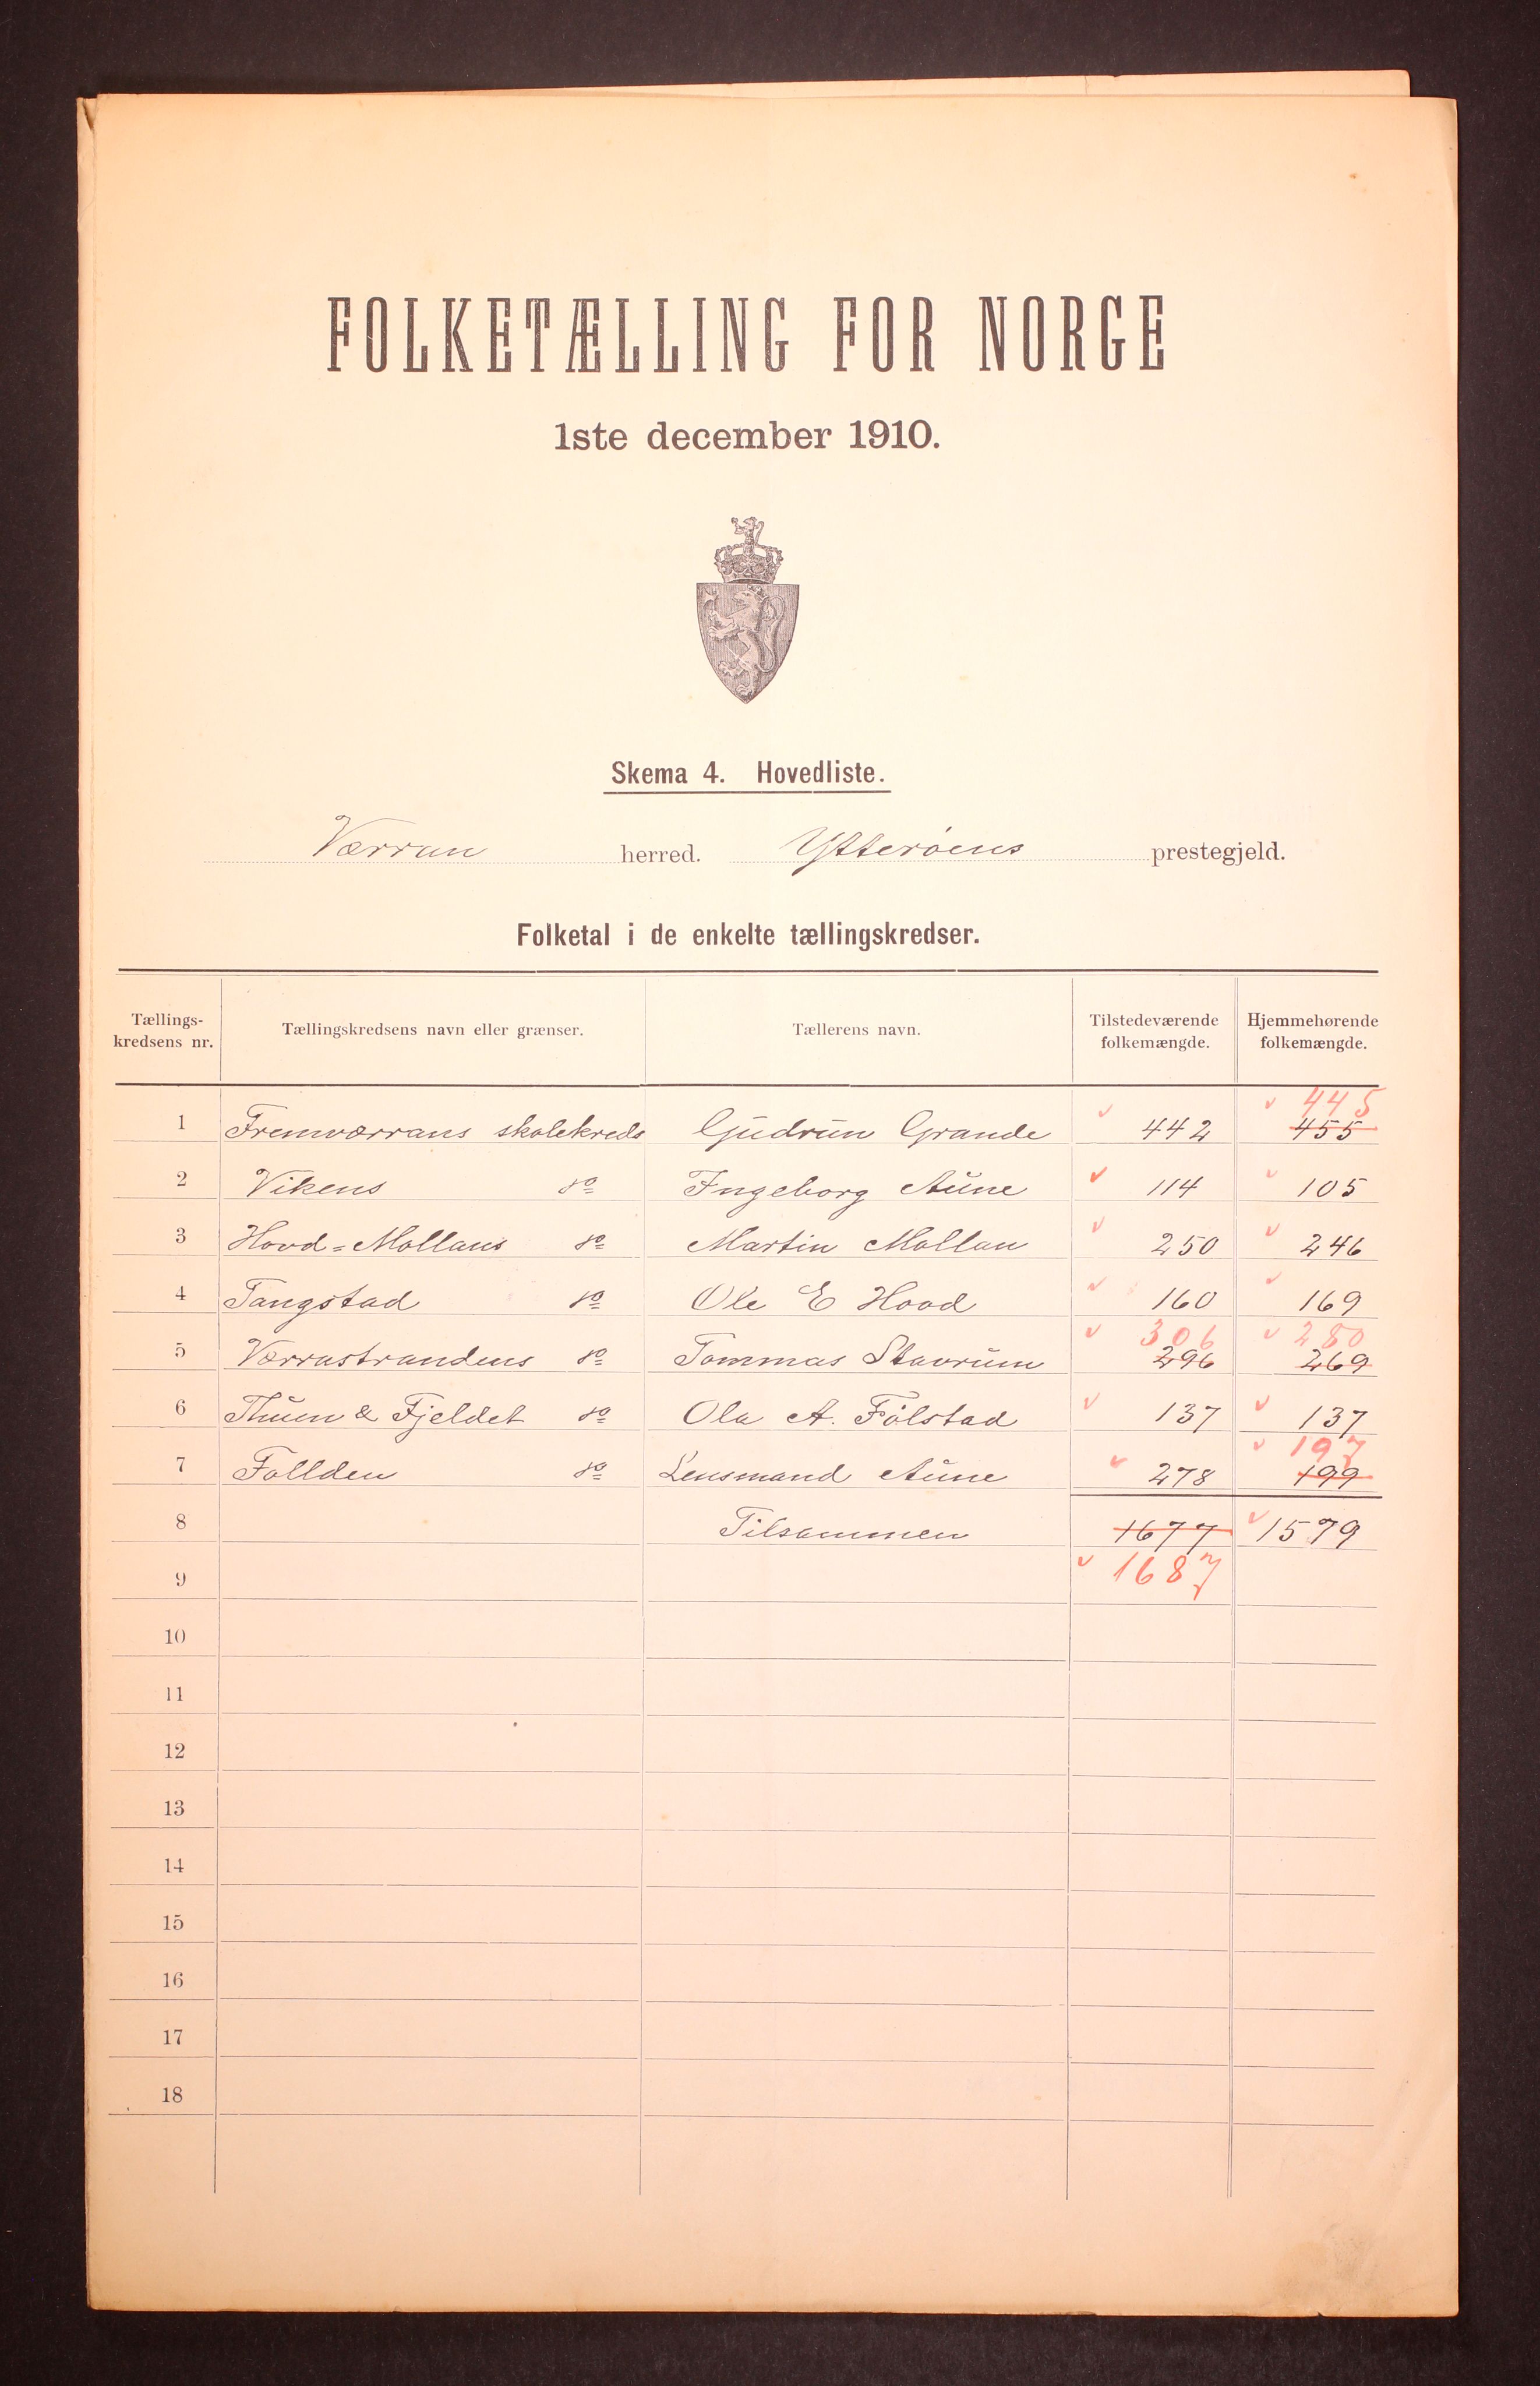 FOLKETÆLLING FOR NORGE
1ste december 1910.
Skema 4. Hovedliste.
Værran herred. Ytterøens prestegjeld.
Folketal i de enkelte tællingskredser.
Tællings- kredsens nr. Tællingskredsens navn eller grænser. Tællerens navn. Tilstedeværende folkemængde. Hjemmehørende folkemængde.
445
1 Fremværrans skolekreds Gudrun Grande 442 455
2 Vikens do Ingeborg Aune 114 105
3 Hovd=Mollans do Martin Mollan 250 246
4 Tangstad do Ole E Hovd 160 169
306 280
5 Værrastrandens do Tommas Stavrum 296 269
6 Thuen & Fjeldet do Ola A. Følstad 137 137
197
7 Follden do Lensmand Aune 278 199
8 Tilsammen 1677 1579
9 1687
10
11
12
13
14
15
16
17
18